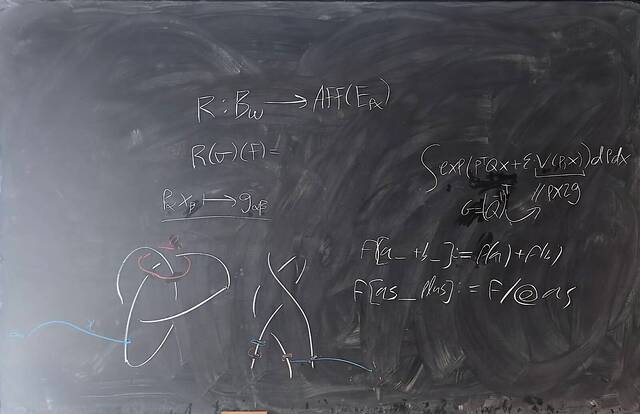 R : B_w → AFF(E_px)
R(σ)(F) =
P_α x_β ↦ g_αβ
∫ exp(pᵀQx + ε V(p,x)) dpdx
G = (Q⁻¹)ᵀ
F[a_ + b_] := F(a) + F(b)
F[as_Plus] := F /@ as